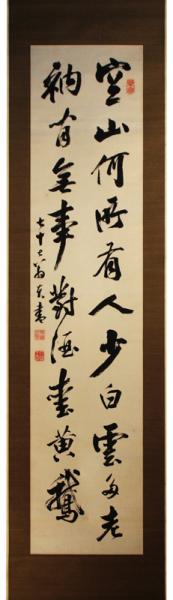 空山何所有人少白雲多老
衲有無事對酒黄鵝
七十七翁書